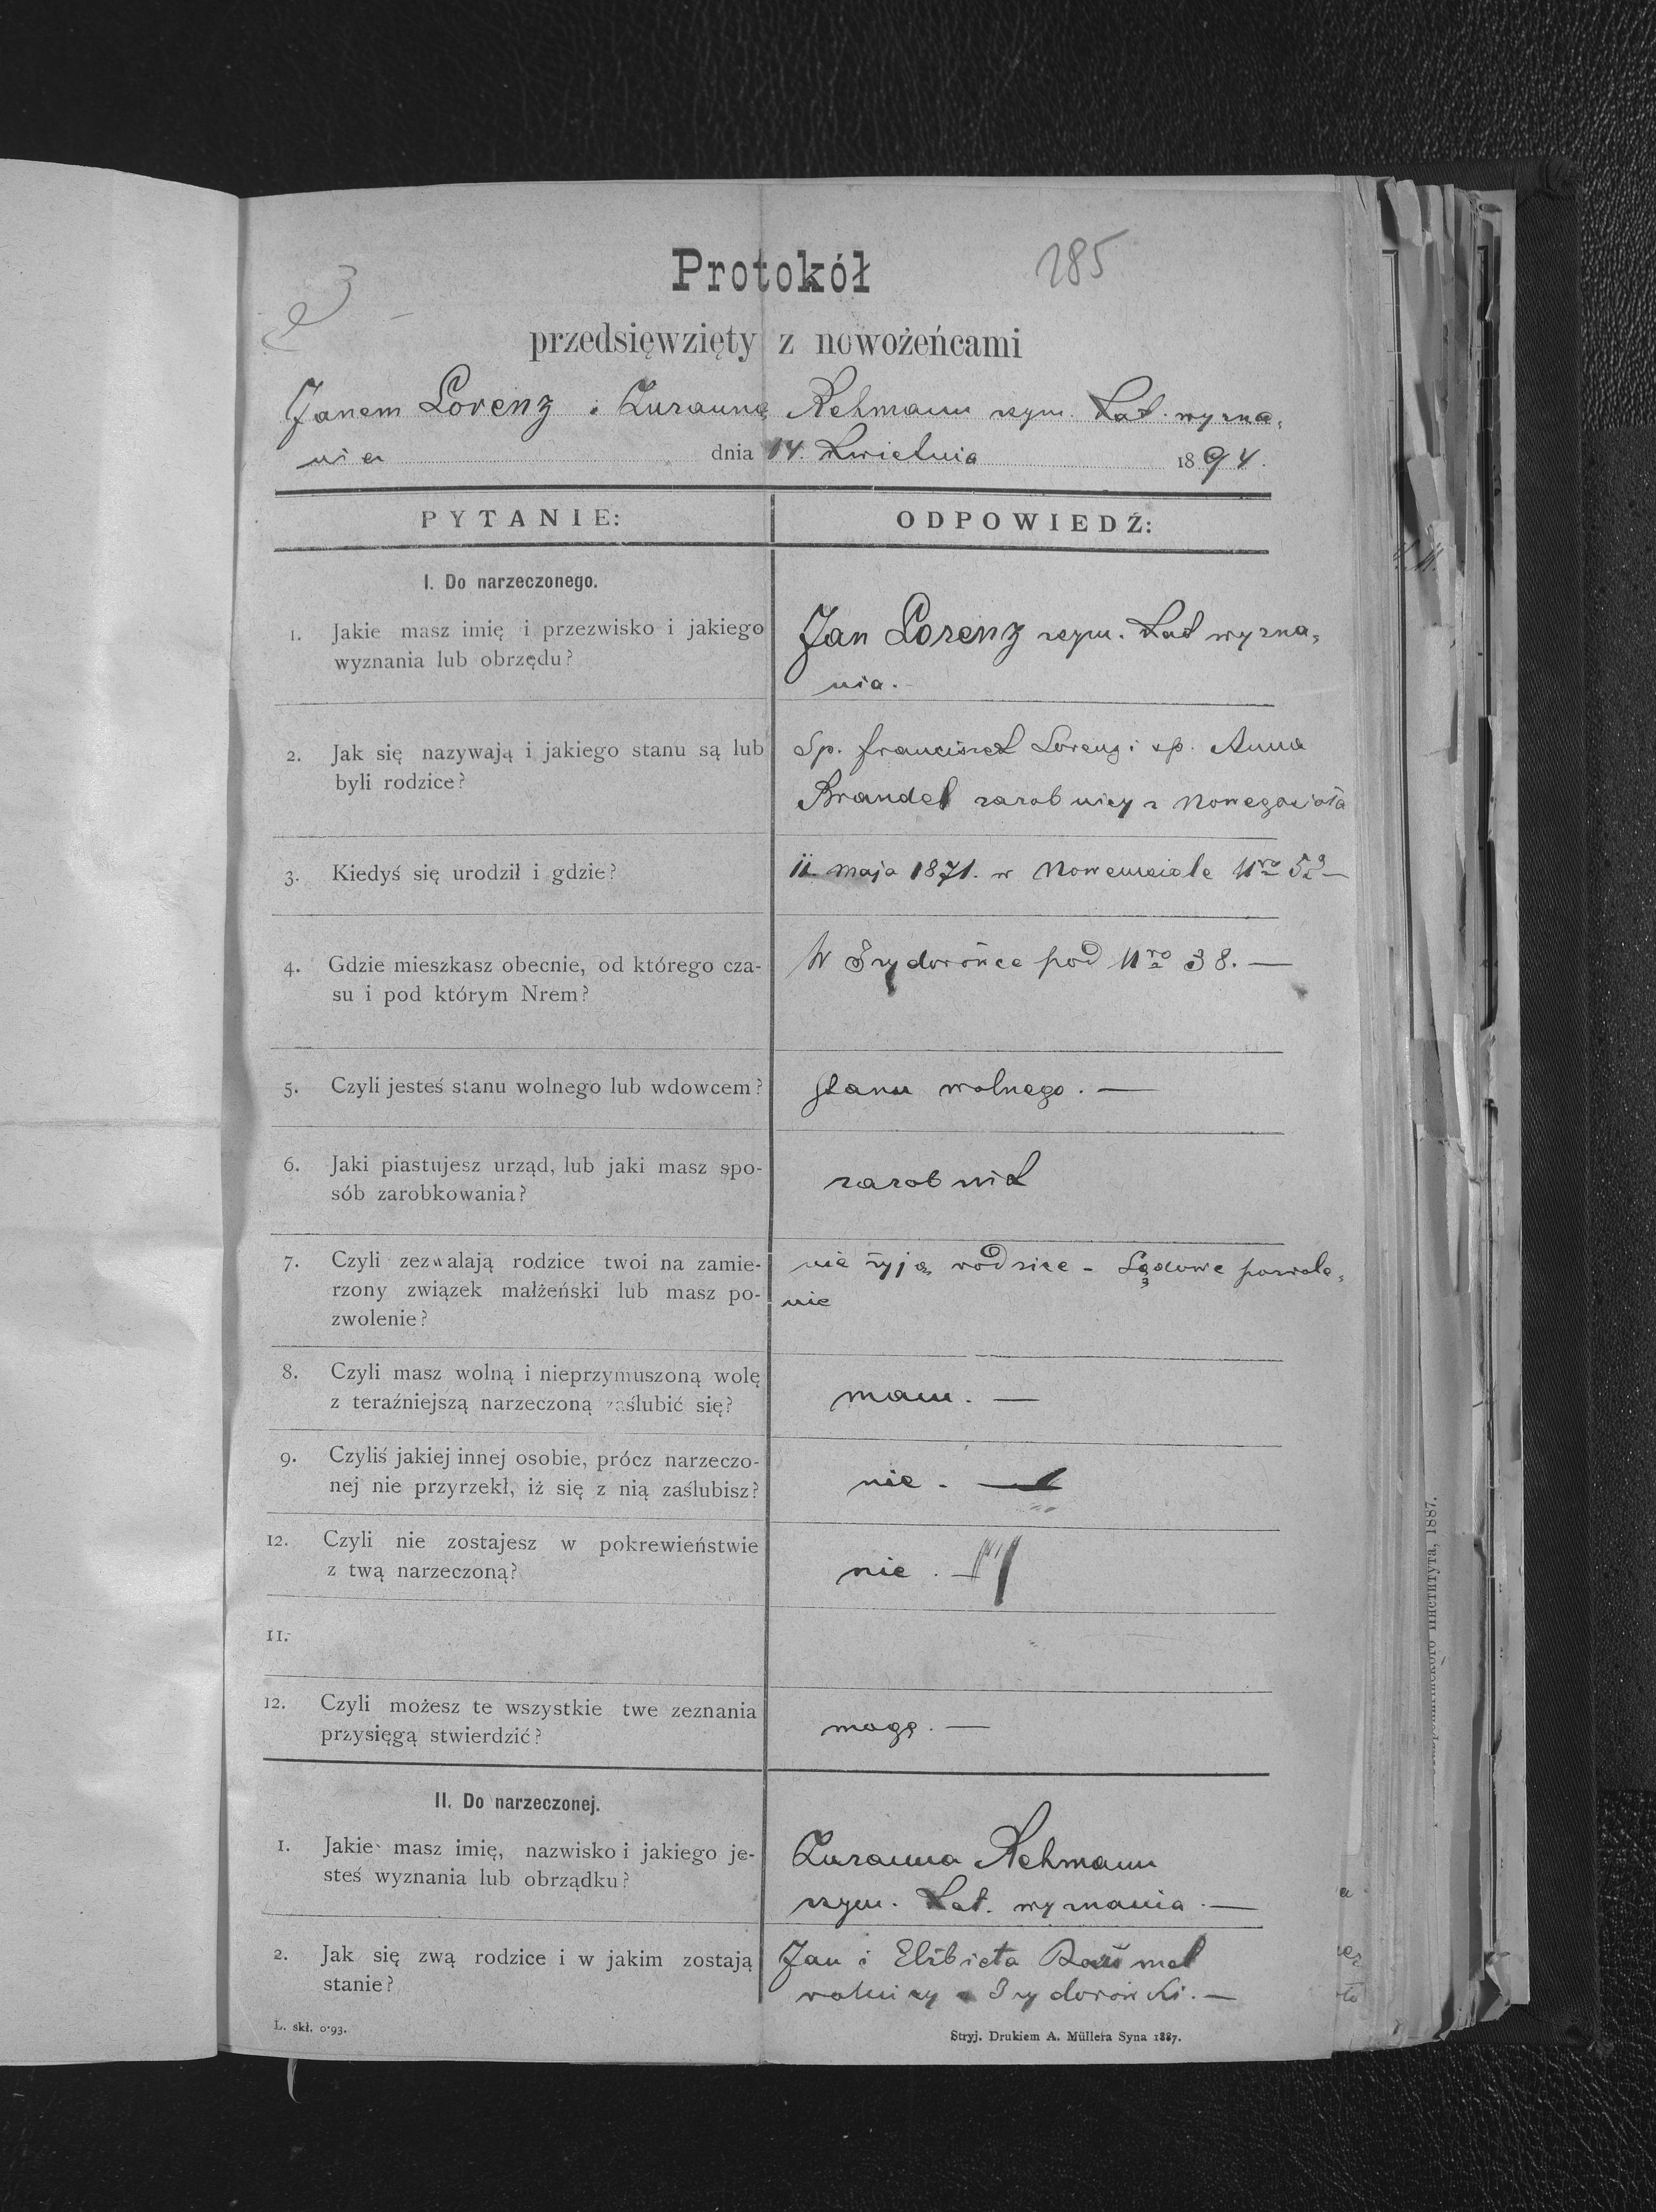 285
Protokół
przedsięwzięty z nowożeńcami
Janem Lorenz i Zuzanną Rehmann rzym. Łat. wyzna,
nia dnia 14. Kwietnia 1894.
PYTANIE: ODPOWIEDŹ:
I. Do narzeczonego.
1. Jakie masz imię i przezwisko i jakiego
wyznania lub obrzędu?
Jan Lorenz rzym. Łat wyzna,
nia.
2. Jak się nazywają i jakiego stanu są lub
byli rodzice?
Sp. franciszek Lorenz i sp. Anna
Brandel zarobnicy z Nowegosioła
3. Kiedyś się urodził i gdzie?
11 maja 1871. w Nowemsiole Nro 52 —
4. Gdzie mieszkasz obecnie, od którego cza-
su i pod którym Nrem?
W Izydorówce pod Nro 38. —
5. Czyli jesteś stanu wolnego lub wdowcem?
stanu wolnego. —
6. Jaki piastujesz urząd, lub jaki masz spo-
sób zarobkowania?
zarobnik
7. Czyli zezwalają rodzice twoi na zamie-
rzony związek małżeński lub masz po-
zwolenie?
nie żyją rodzice - Sądowe pozwole,
nie
8. Czyli masz wolną i nieprzymuszoną wolę
z teraźniejszą narzeczoną zaślubić się?
mam. —
9. Czyliś jakiej innej osobie, prócz narzeczo-
nej nie przyrzekł, iż się z nią zaślubisz?
nie. —
12. Czyli nie zostajesz w pokrewieństwie
z twą narzeczoną?
nie. —
11.
12. Czyli możesz te wszystkie twe zeznania
przysięgą stwierdzić?
mogę. —
II. Do narzeczonej.
1. Jakie masz imię, nazwisko i jakiego je-
steś wyznania lub obrządku?
Zuzanna Rehmann
rzym. Łat. wyznania. —
2. Jak się zwą rodzice i w jakim zostają
stanie?
Jan i Elżbieta
rolnicy z Izydorówki. —
L. skł. 0·93.
Stryj. Drukiem A. Müllera Syna 1887.
института, 1887.